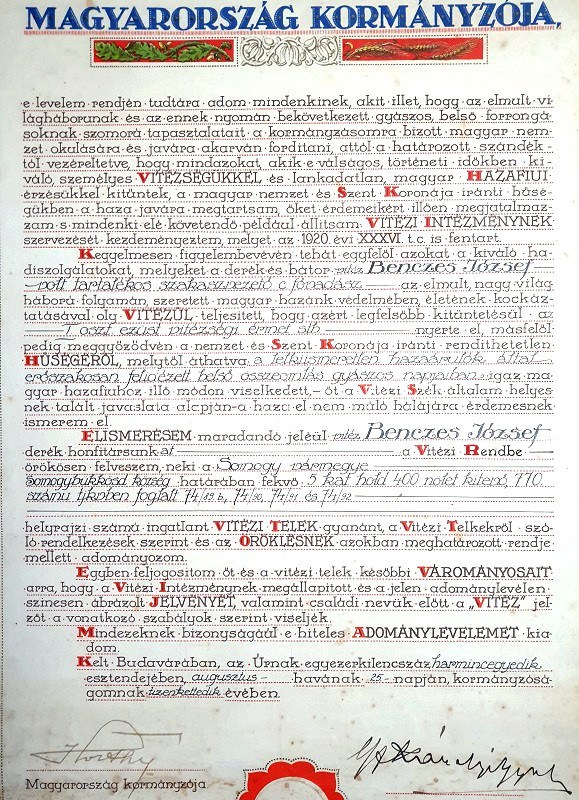 MAGYARORSZÁG KORMÁNYZÓJA,
e levelem rendjén tudtára adom mindenkinek, akit illet, hogy az elmult vi-
lágháborunak és az ennek nyomán bekövetkezett gyászos, belső forrongá-
soknak szomorú tapasztalatait a kormányzásomra bízott magyar nem-
zet okulására és javára akarván fordítani, attól a határozott szándék-
tól vezéreltetve, hogy mindazokat, akik e válságos, történeti időkben ki-
váló, személyes VITÉZSÉGÜKKEL és lankadatlan, magyar HAZAFIUI
érzésükkel kitüntek, a magyar nemzet és Szent Koronája iránti hűsé-
gükben a haza javára megtartsam, őket érdemeikért illően megjutalmaz-
zam s mindenki elé követendő például állítsam VITÉZI INTÉZMÉNYNEK
szervezését kezdeményeztem, melyet az 1920. évi XXXVI. t.c. is fentart.
Kegyelmesen figyelembevévén tehát egyfelől azokat a kiváló ha-
diszolgálatokat, melyeket a derék és bátor vitéz Benczes József
volt tartalékos szakaszvezető c. főhadász az elmult, nagy világ-
háború folyamán, szeretett magyar hazánk védelmében, életének kockáz-
tatásával oly VITÉZÜL teljesített, hogy azért legfelsőbb kitüntetésül az
I. oszt. ezüst vitézségi érmet stb. nyerte el, másfelől
pedig meggyőződvén a nemzet és Szent Koronája iránti rendíthetetlen
HŰSÉGÉRŐL, melytől áthatva a lelkiismeretlen hazaárulók által
erőszakosan felidézett belső összeomlás gyászos napjaiban igaz ma-
gyar hazafiuhoz illő módon viselkedett, – őt a Vitézi Szék általam helyes-
nek talált javaslata alapján a haza el nem múló hálájára érdemesnek
ismerem el.
ELISMERÉSEM maradandó jeléül vitéz Benczes József
derék honfitársunkat a Vitézi Rendbe
örökösen felveszem, neki a Somogy vármegye
Somogybükkösd község határában fekvő 5 kat. hold 400 nöl.et kitevő, 770.
számu tjkvben foglalt 74/49.b, 74/90, 74/91 és 74/92
helyrajzi számú ingatlant VITÉZI TELEK gyanánt, a Vitézi Telkekről szó-
ló rendelkezések szerint és az ÖRÖKLÉSNEK azokban meghatározott rendje
mellett adományozom.
Egyben feljogosítom őt és a vitézi telek későbbi VÁROMÁNYOSAIT
arra, hogy a Vitézi Intézménynek megállapított és a jelen adománylevélen
színesen ábrázolt JELVÉNYÉT, valamint családi nevük előtt a „VITÉZ” jel-
zőt a vonatkozó szabályok szerint viseljék.
Mindezeknek bizonyságául e hiteles ADOMÁNYLEVELEMET kia-
dom.
Kelt Budavárában, az Úrnak egyezerkilencszáz harmincegyedik
esztendejében, augusztus havának 25- napján, kormányzósá-
gomnak tizenkettedik évében.
Horthy
Magyarország kormányzója